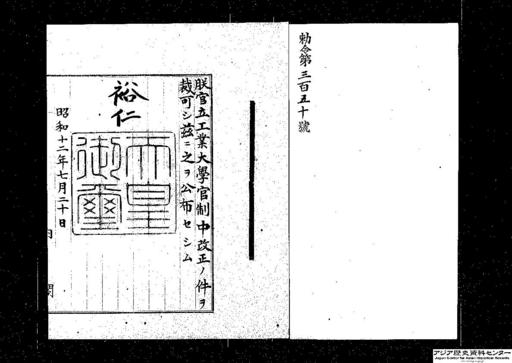 勅令第三百五十號
朕官立工業大學官制中改正ノ件ヲ
裁可シ茲ニ之ヲ公布セシム
裕仁
天皇
御璽
昭和十二年七月二十日
アジア歴史資料センター
Japan Center for Asian Historical Records